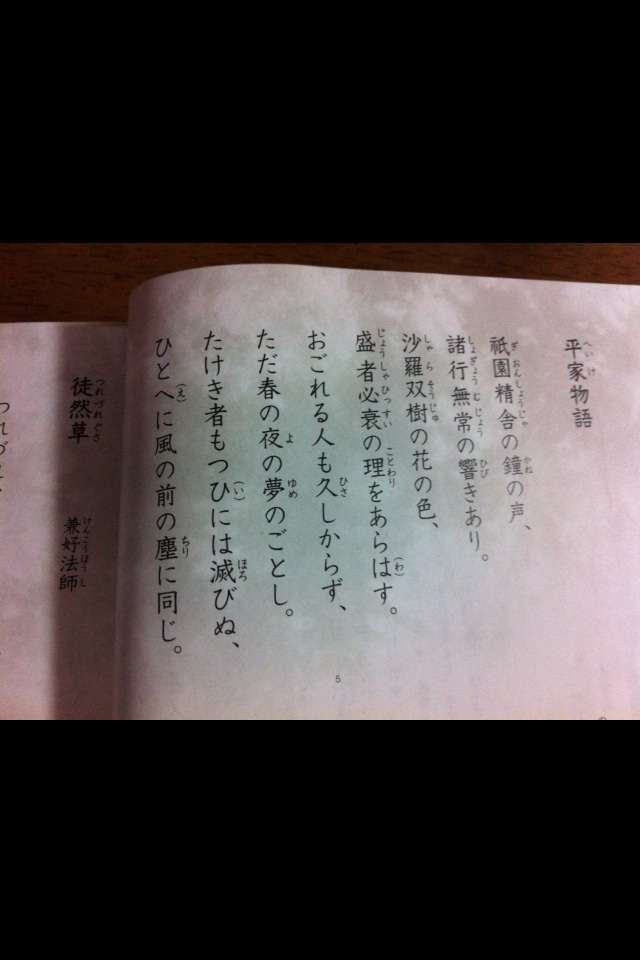 平家物語
祇園精舎の鐘の声、
諸行無常の響きあり。
沙羅双樹の花の色、
盛者必衰の理をあらはす。
おごれる人も久しからず、
ただ春の夜の夢のごとし。
たけき者もつひには滅びぬ、
ひとへに風の前の塵に同じ。
5
徒然草 兼好法師
つれづれ